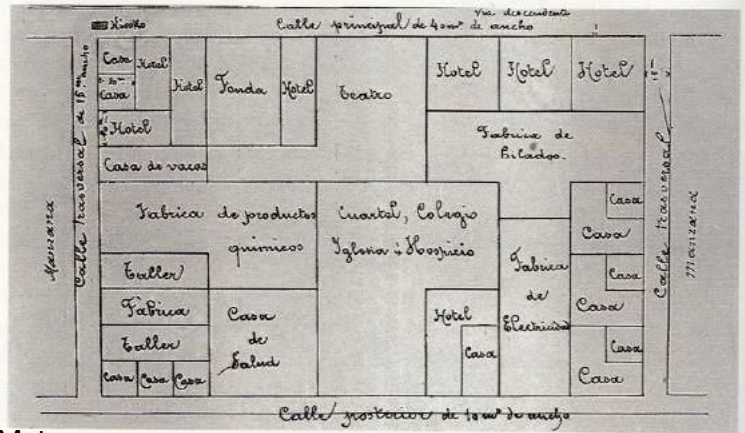 Kiosko
Calle principal de 40 ms de ancho
Via descendente
Casa
Hotel
Hotel
Fonda
Hotel
Teatro
Hotel
Hotel
Hotel
Casa
Hotel
Casa de vacas
Fabrica de
hilados.
Manzana
Calle trasversal de 15 ms ancho
Fabrica de productos
quimicos
Cuartel, Colegio
Iglesia ú Hospicio
Casa
Casa
Calle trasversal
Manzana
Taller
Fabrica
Taller
Casa
de
Salud
Hotel
Casa
Fabrica
de
Electricidad
Casa
Casa
Casa
Casa
Casa
Casa
Casa
Calle posterior de 10 ms de ancho